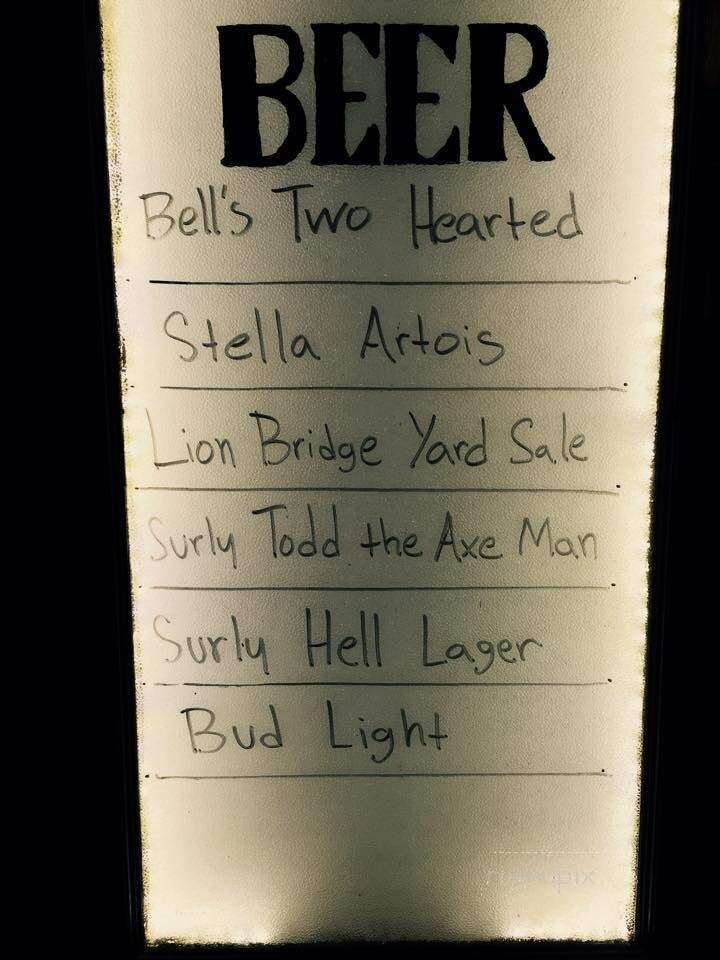 BEER
Bell's Two Hearted
Stella Artois
Lion Bridge Yard Sale
Surly Todd the Axe Man
Surly Hell Lager
Bud Light